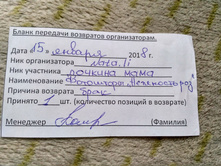 Бланк передачи возвратов организаторам.
Дата 15 января 2018 г.
Ник организатора Nata.li
Ник участника дочкина мама
Наименование
Причина возврата Брак
Принято 1 шт. (количество позиций в возврате)
Менеджер (Фамилия)